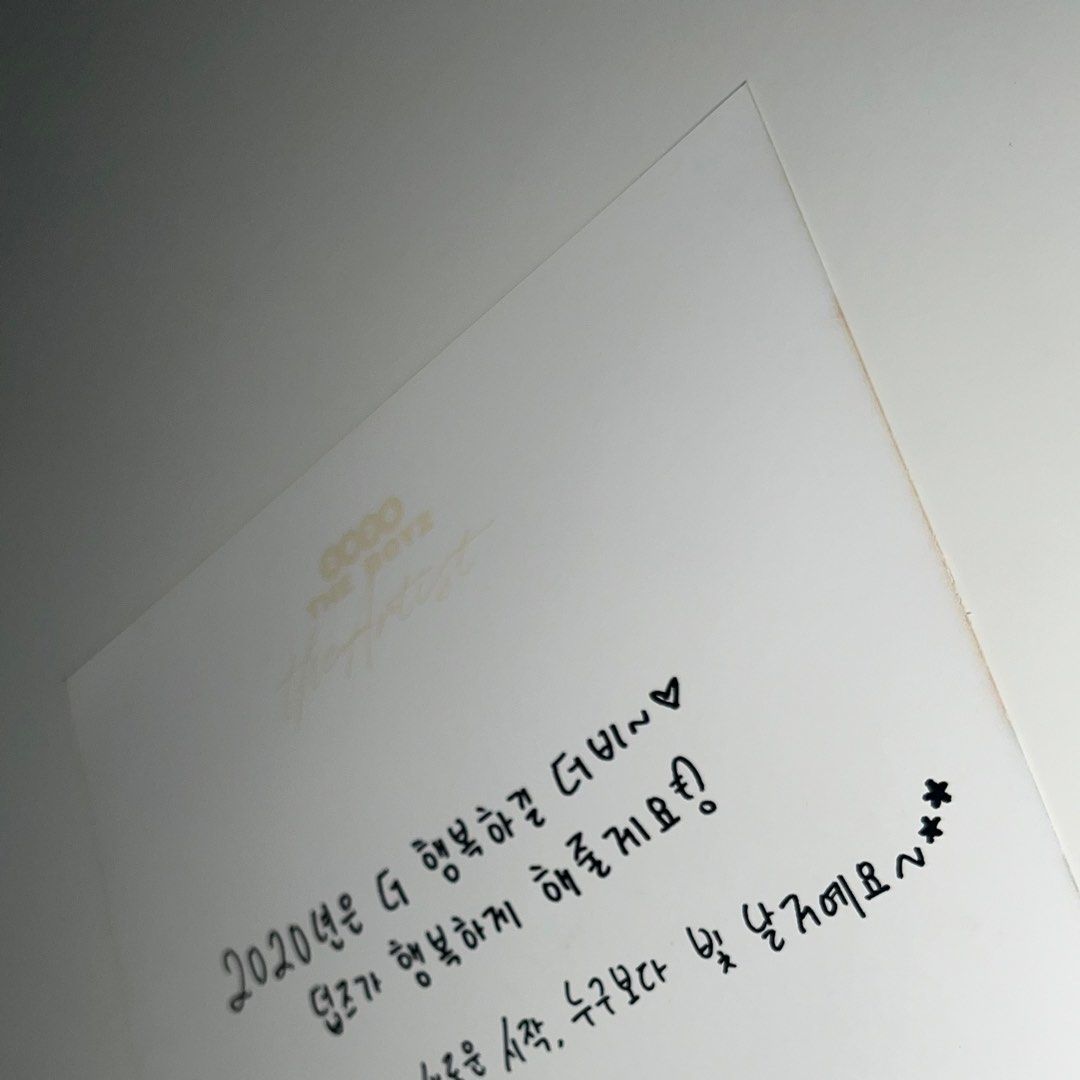 THE BOYZ
the Artist
2020년은 더 행복하길 더비~♡
덥즈가 행복하게 해줄게요
시작, 누구보다 빛 날거예요~★★